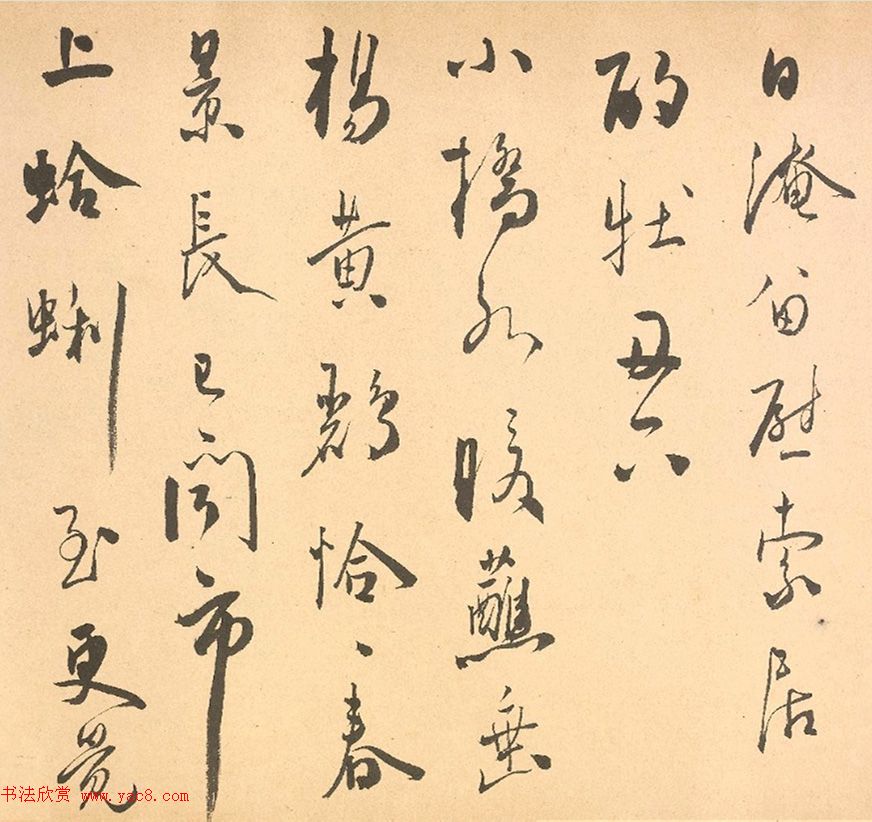 日淹留慰索居
酌牡丹下
小橋水暖蘸垂
楊黃鸝恰〻春
景長已聞市
上蛤蜊至更覺
书法欣赏 www.yac8.com